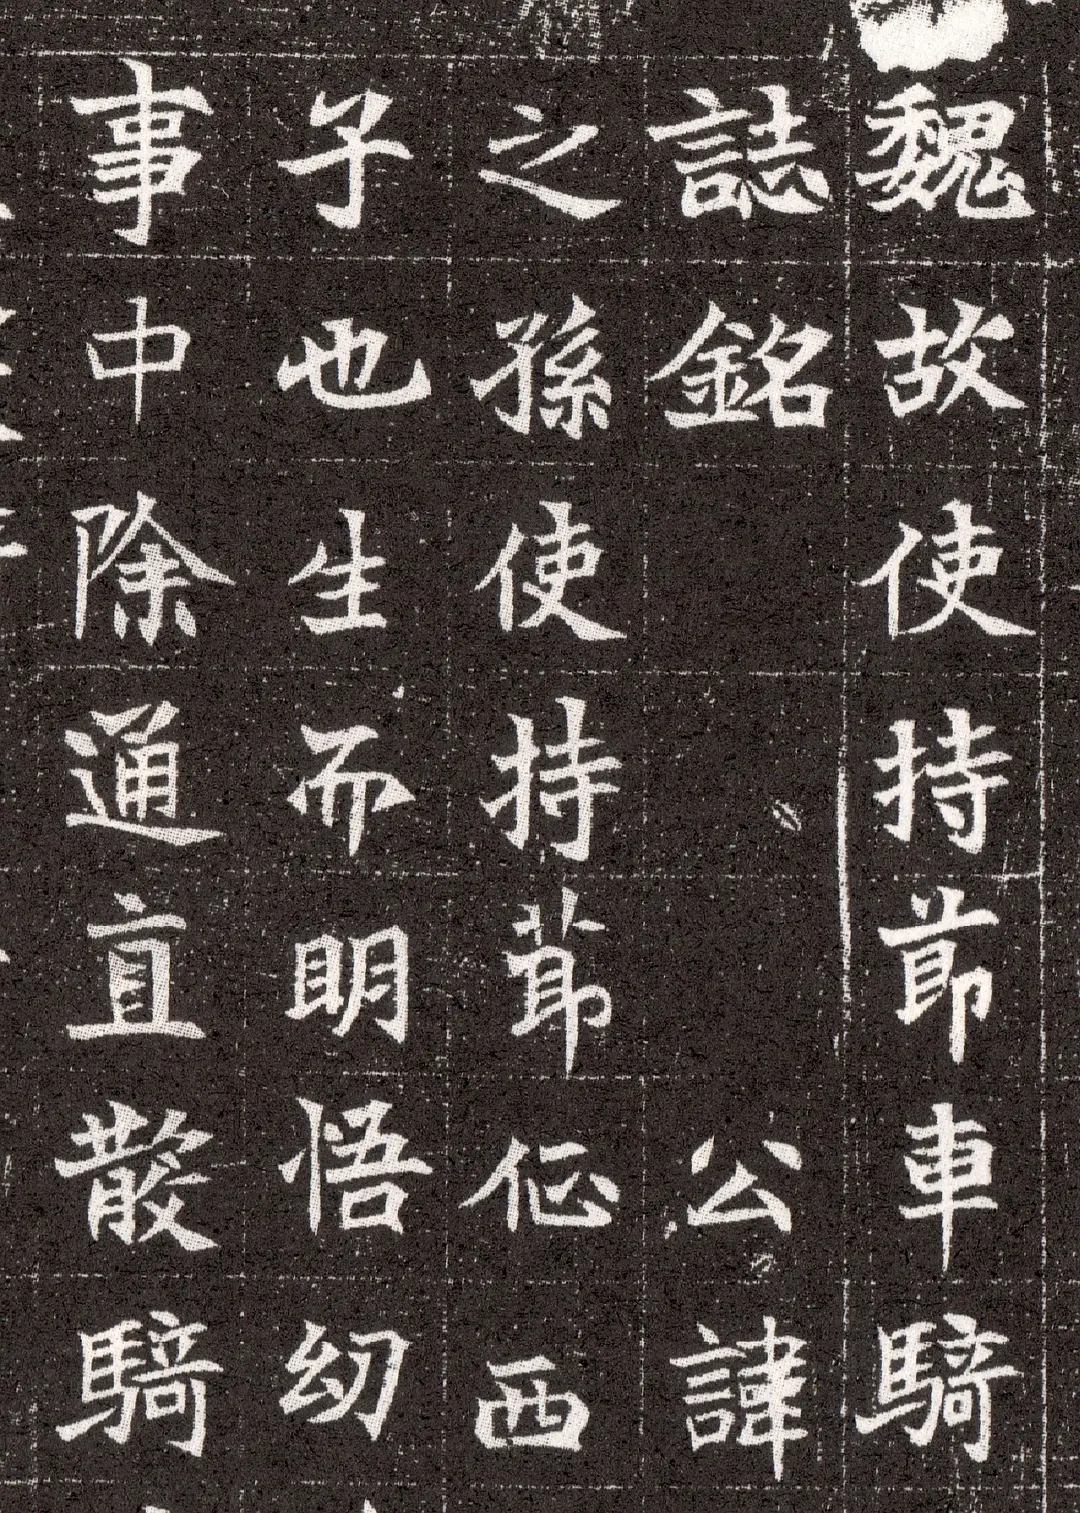 魏故使持節車騎
誌銘公諱
之孫使持節征西
子也生而明悟幼
事中除通直散騎